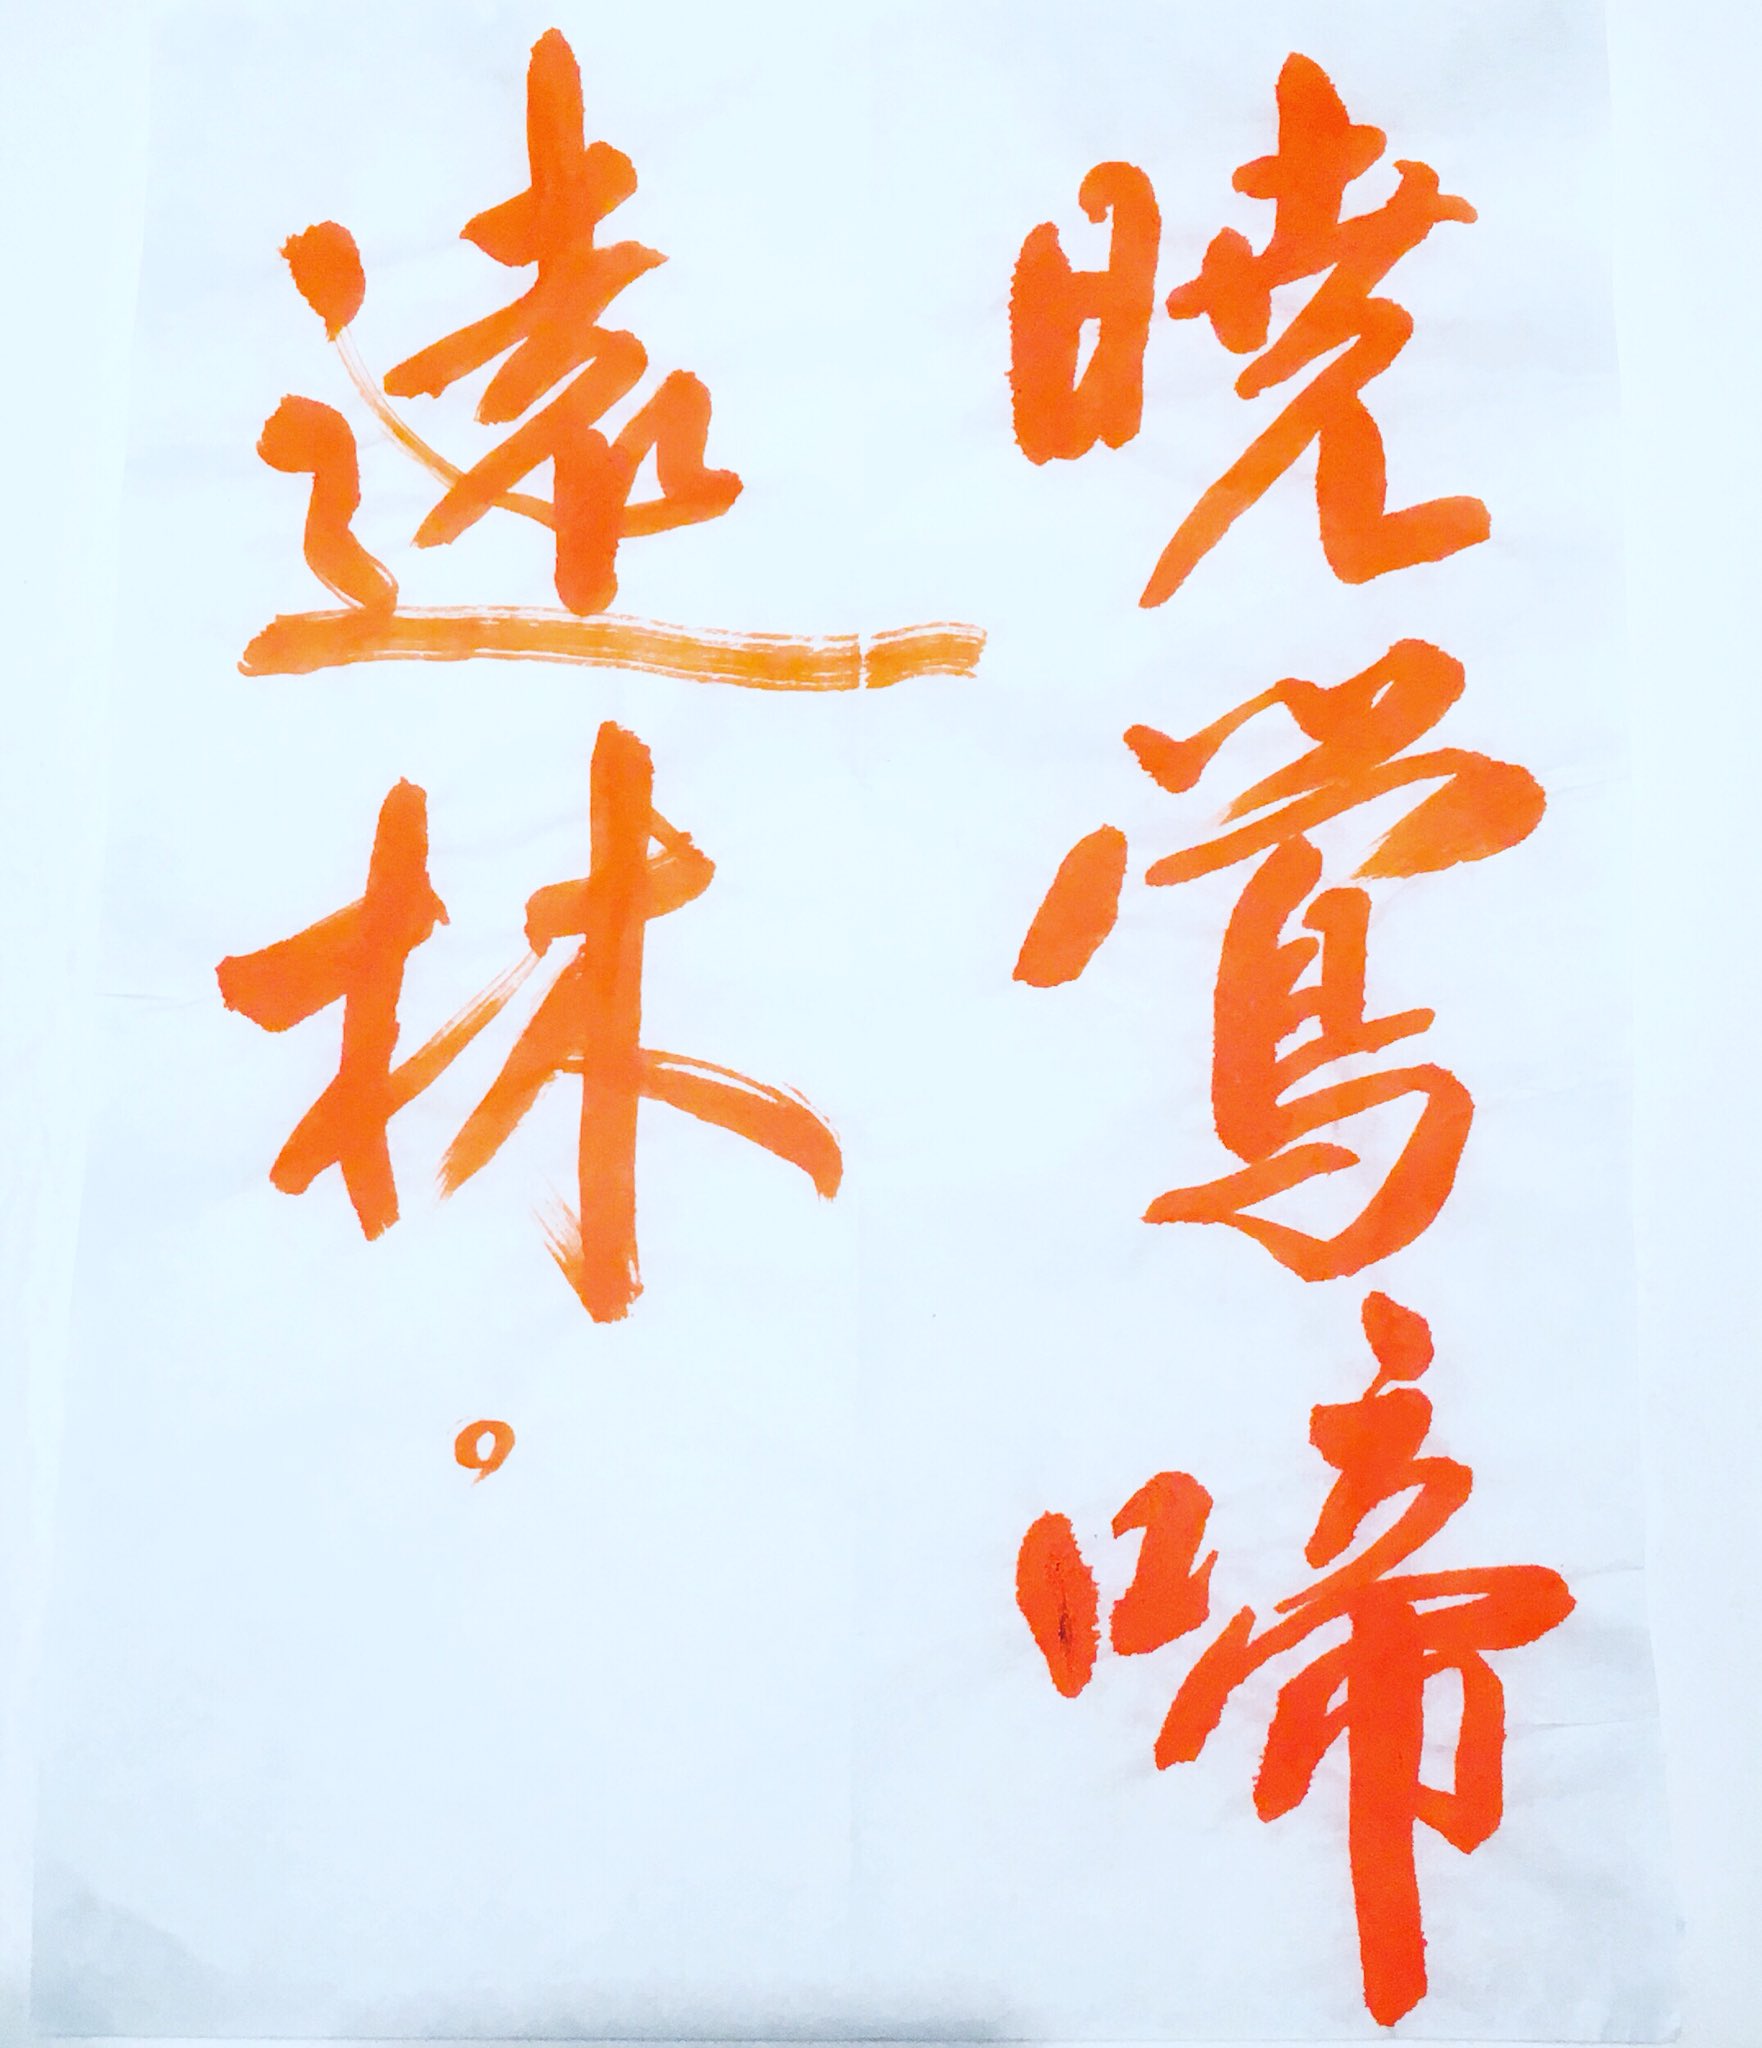 暁鶯啼
遠林。